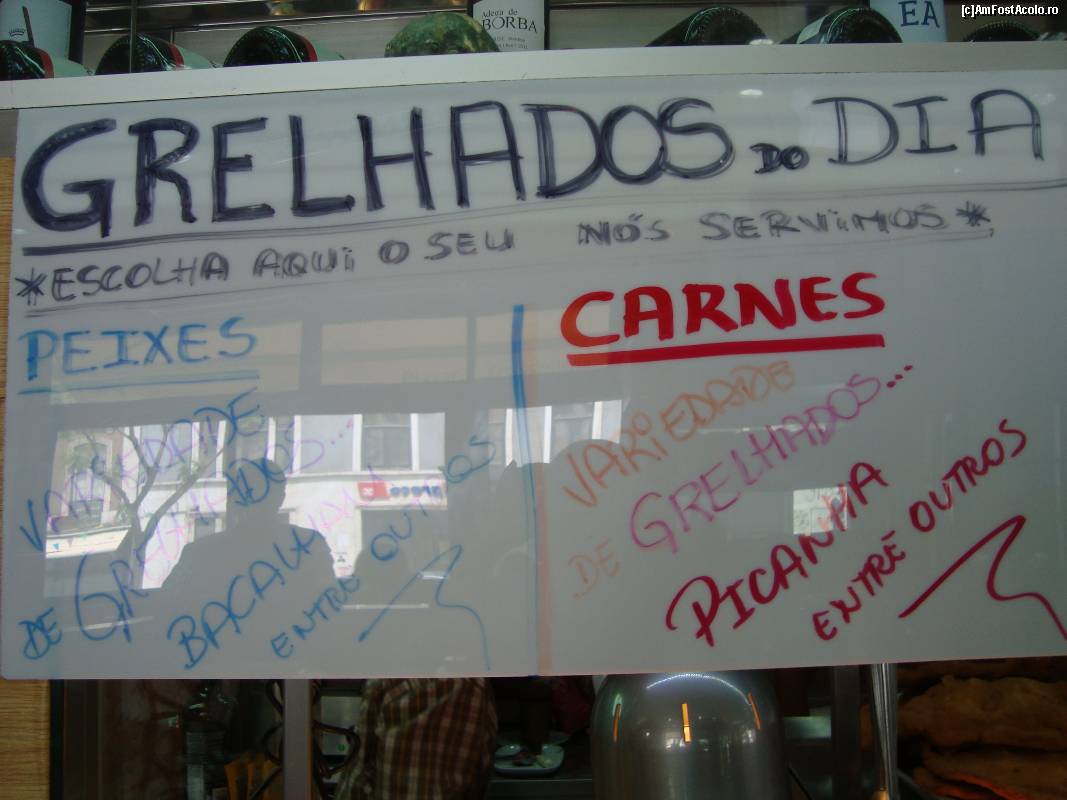 [c]AmFostAcolo.ro
Adeira de
BORBA
EA
GRELHADOS DO DIA
*ESCOLHA AQUI O SEU NÓS SERVIMOS*
PEIXES
VARIEDADE
DE GRELHADOS...
BACALHAU
ENTRE OUTROS
CARNES
VARIEDADE
DE GRELHADOS...
PICANHA
ENTRE OUTROS